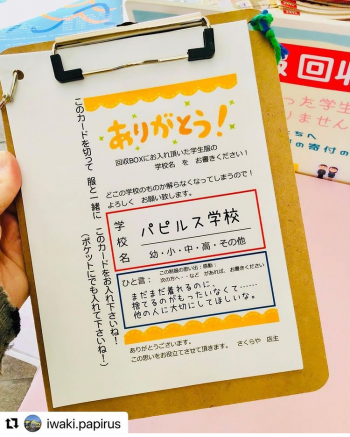 服回収
った学生
りません
ちへ
の寄付の
このカードを切って 服と一緒に このカードをお入れ下さいね！
（ポケットにでも入れて下さいね！）
ありがとう！
回収BOXにお入れ頂いた学生服の
学校名 を お書きください！
どこの学校のものか解らなくなってしまうので！
よろしく お願い致します。
学校名
パピルス学校
幼・小・中・高・その他
ひと言：
この制服の思い出・感動・
次の方へ・・など があれば、お書きください
まだまだ着れるのに、
捨てるのがもったいなくて......
他の人に大切にしてほしいな。
ありがとうございます。
この思いをお役立てさせて頂きます。 さくらや 店主
iwaki.papirus